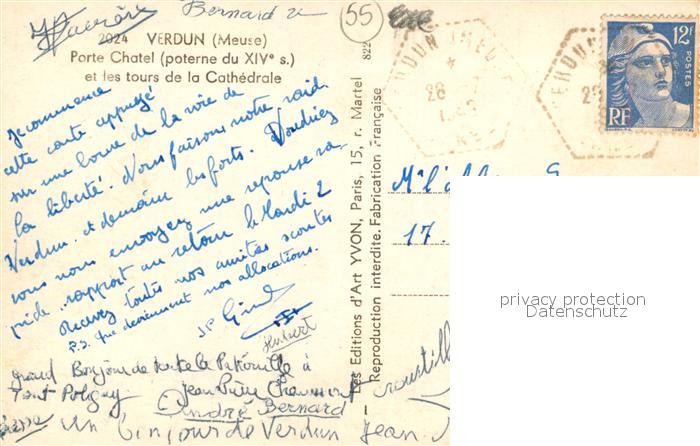 Bernard
55
2024 VERDUN (Meuse)
Porte Chatel (poterne du XIVe s.)
et les tours de la Cathédrale
822
12F
POSTES
RF
28
Je commence
cette carte appuyé
sur une borne de la voie de
la liberté. Nous faisons notre raid.
Verdun et demain les forts. Voudriez
vous nous envoyez une réponse ra-
pide, rapport au retour le Mardi 2
Recevez toutes nos amitiés scoutes
P.S. Que deviennent nos allocations.
JP
Hubert
Grand Bonjour de toute la Patrouille à
Poligny
Jean Pierre
André Bernard
Un bonjour de Verdun Jean
Les Editions d'Art YVON, Paris, 15, r. Martel
Reproduction interdite. Fabrication Française
M. l'Abbé
17.
privacy protection
Datenschutz